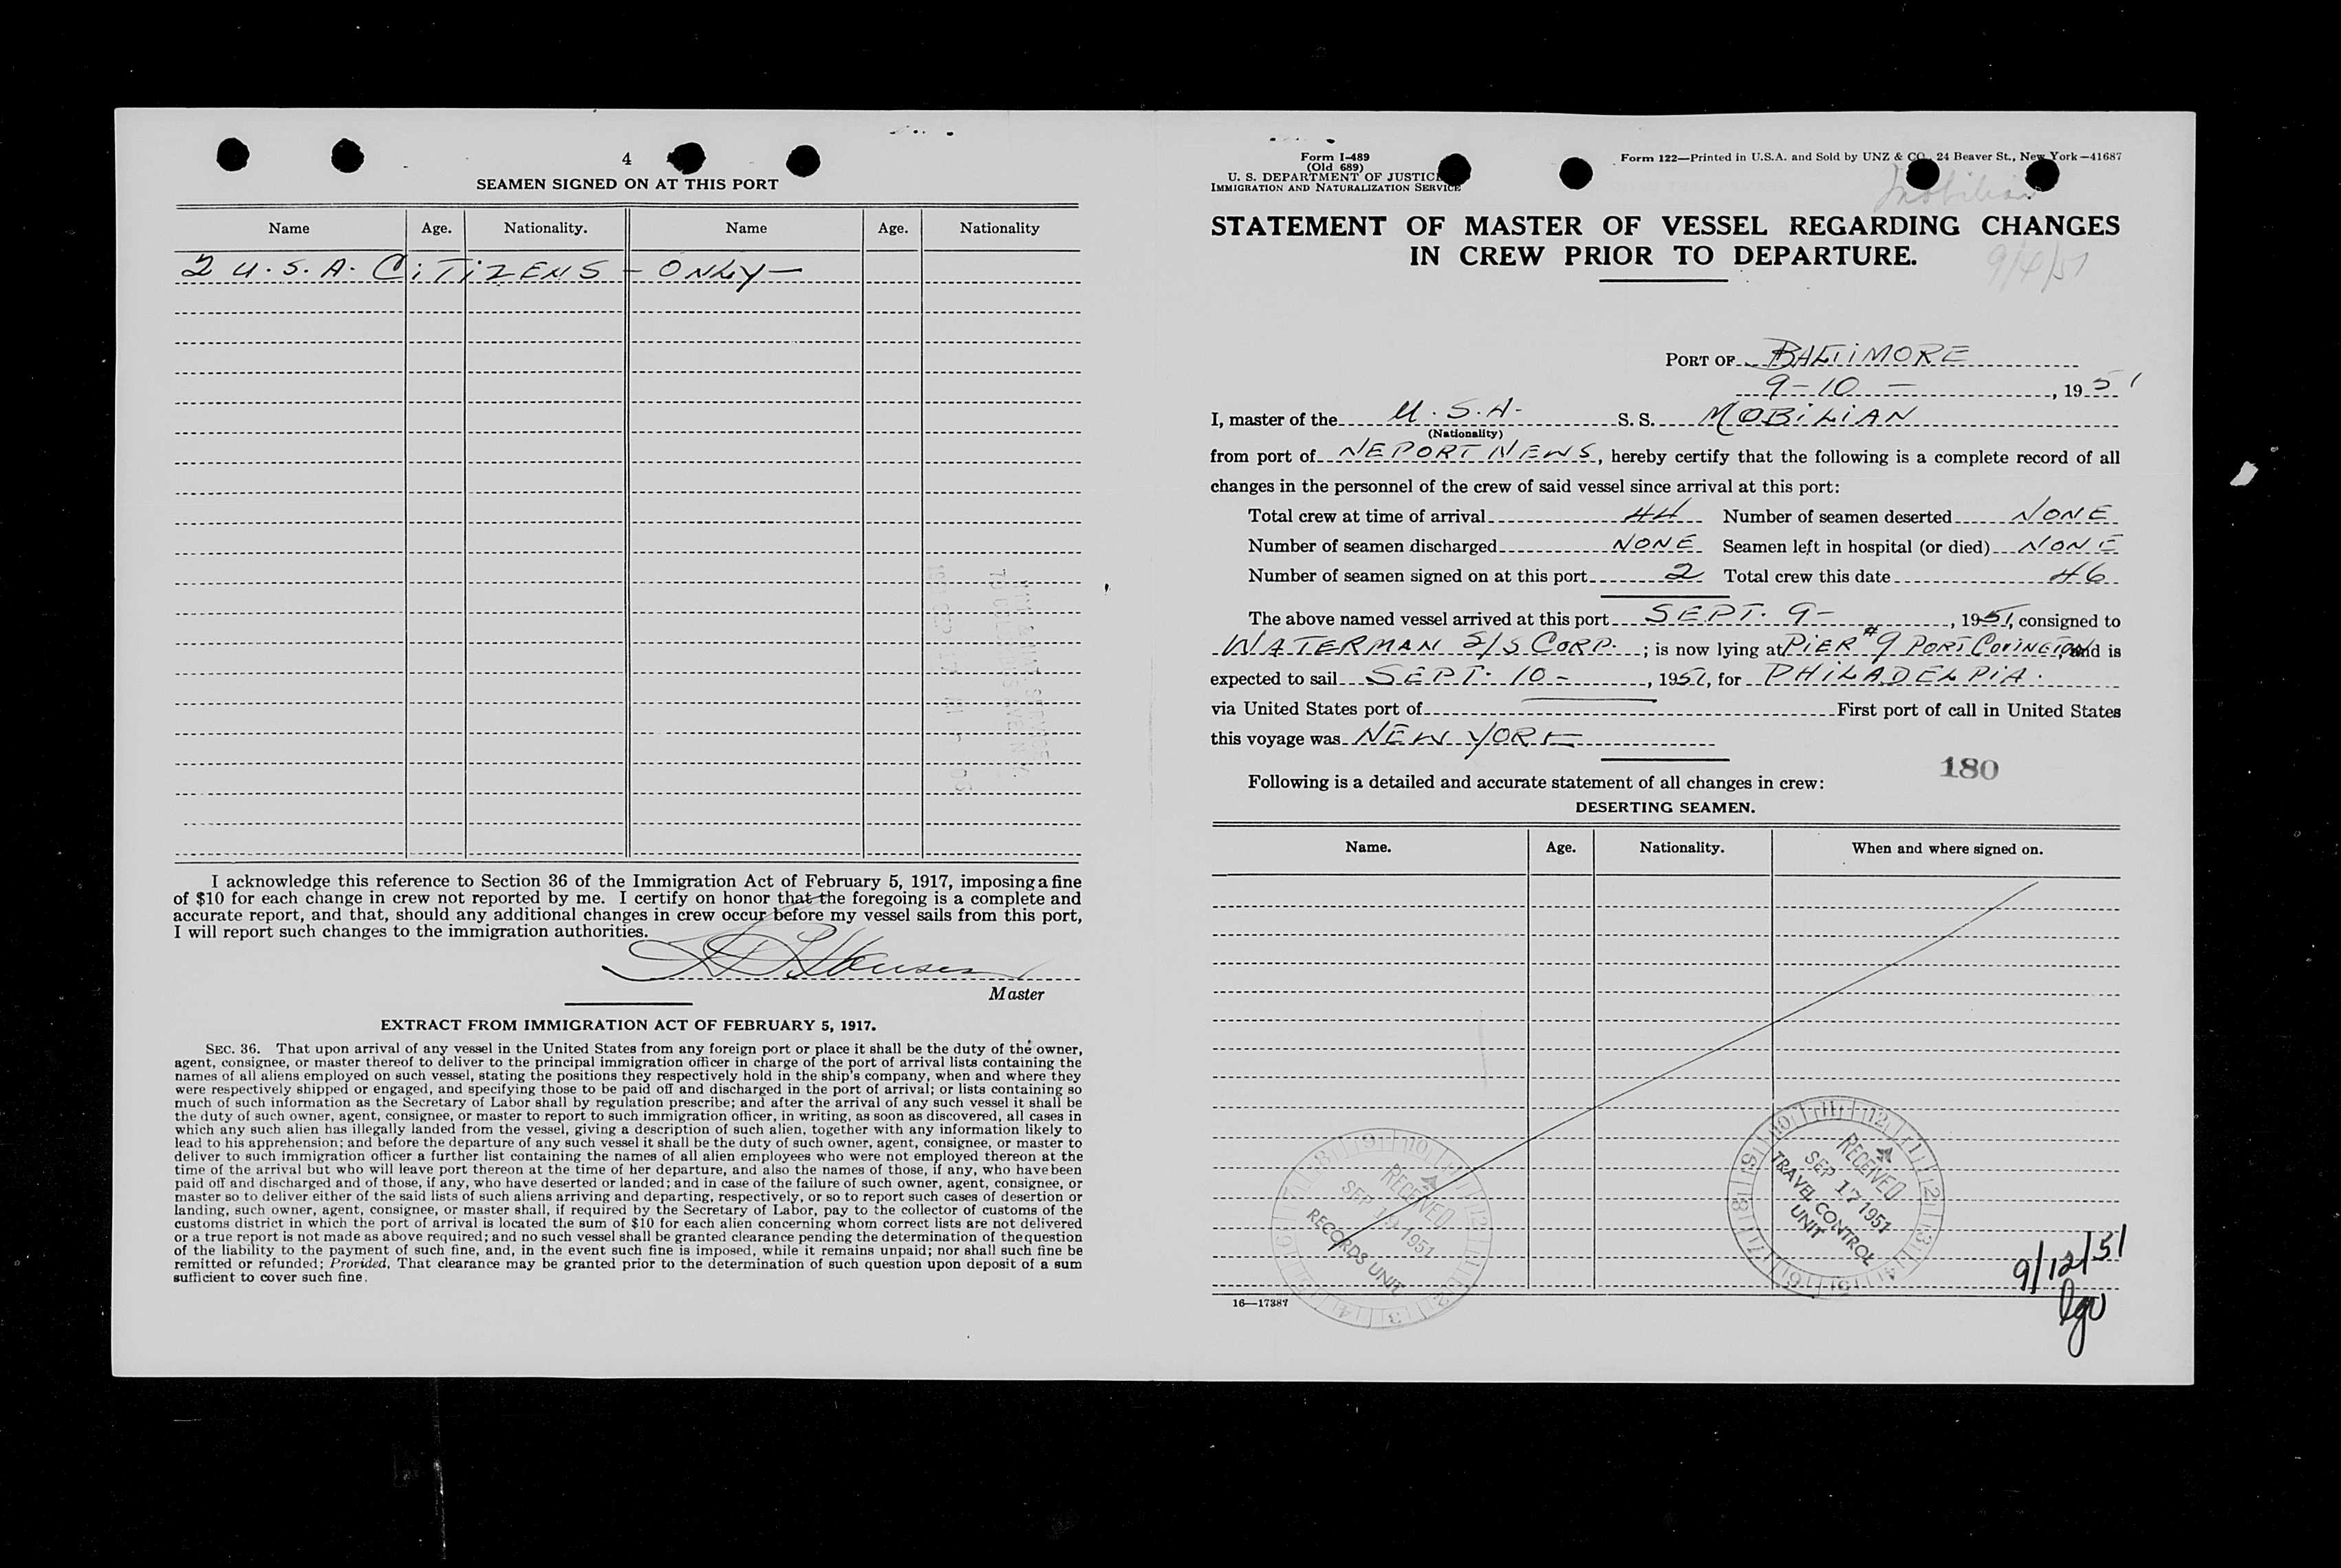 4
SEAMEN SIGNED ON AT THIS PORT
Name Age. Nationality. Name Age. Nationality
2 U.S.A. CiTiZENS - ONLY -
I acknowledge this reference to Section 36 of the Immigration Act of February 5, 1917, imposing a fine
of $10 for each change in crew not reported by me. I certify on honor that the foregoing is a complete and
accurate report, and that, should any additional changes in crew occur before my vessel sails from this port,
I will report such changes to the immigration authorities.
Master
EXTRACT FROM IMMIGRATION ACT OF FEBRUARY 5, 1917.
SEC. 36. That upon arrival of any vessel in the United States from any foreign port or place it shall be the duty of the owner,
agent, consignee, or master thereof to deliver to the principal immigration officer in charge of the port of arrival lists containing the
names of all aliens employed on such vessel, stating the positions they respectively hold in the ship's company, when and where they
were respectively shipped or engaged, and specifying those to be paid off and discharged in the port of arrival; or lists containing so
much of such information as the Secretary of Labor shall by regulation prescribe; and after the arrival of any such vessel it shall be
the duty of such owner, agent, consignee, or master to report to such immigration officer, in writing, as soon as discovered, all cases in
which any such alien has illegally landed from the vessel, giving a description of such alien, together with any information likely to
lead to his apprehension; and before the departure of any such vessel it shall be the duty of such owner, agent, consignee, or master to
deliver to such immigration officer a further list containing the names of all alien employees who were not employed thereon at the
time of the arrival but who will leave port thereon at the time of her departure, and also the names of those, if any, who have been
paid off and discharged and of those, if any, who have deserted or landed; and in case of the failure of such owner, agent, consignee, or
master so to deliver either of the said lists of such aliens arriving and departing, respectively, or so to report such cases of desertion or
landing, such owner, agent, consignee, or master shall, if required by the Secretary of Labor, pay to the collector of customs of the
customs district in which the port of arrival is located the sum of $10 for each alien concerning whom correct lists are not delivered
or a true report is not made as above required; and no such vessel shall be granted clearance pending the determination of the question
of the liability to the payment of such fine, and, in the event such fine is imposed, while it remains unpaid; nor shall such fine be
remitted or refunded; Provided, That clearance may be granted prior to the determination of such question upon deposit of a sum
sufficient to cover such fine.
Form I-489
(Old 689)
U. S. DEPARTMENT OF JUSTICE
IMMIGRATION AND NATURALIZATION SERVICE
Form 122—Printed in U.S.A. and Sold by UNZ & CO., 24 Beaver St., New York—41687
Mobilian
STATEMENT OF MASTER OF VESSEL REGARDING CHANGES
IN CREW PRIOR TO DEPARTURE.
9/4/51
PORT OF BALTiMORE
9-10 -, 1951
I, master of the U.S.A. S. S. MOBiLiAN
(Nationality)
from port of NEPORT NEWS, hereby certify that the following is a complete record of all
changes in the personnel of the crew of said vessel since arrival at this port:
Total crew at time of arrival 44 Number of seamen deserted NONE
Number of seamen discharged NONE Seamen left in hospital (or died) NONE
Number of seamen signed on at this port 2 Total crew this date 46
The above named vessel arrived at this port SEPT. 9-, 1951, consigned to
WATERMAN S/S CORP. ; is now lying at PiER #9 PORT COVINGTON and is
expected to sail SEPT. 10 -, 1951, for PHiLADELPiA.
via United States port of First port of call in United States
this voyage was NEW YORK
180
Following is a detailed and accurate statement of all changes in crew:
DESERTING SEAMEN.
Name. Age. Nationality. When and where signed on.
RECEIVED
SEP 1951
RECORDS UNIT
RECEIVED
SEP 17 1951
TRAVEL CONTROL
UNIT
9/12/51
16—17387